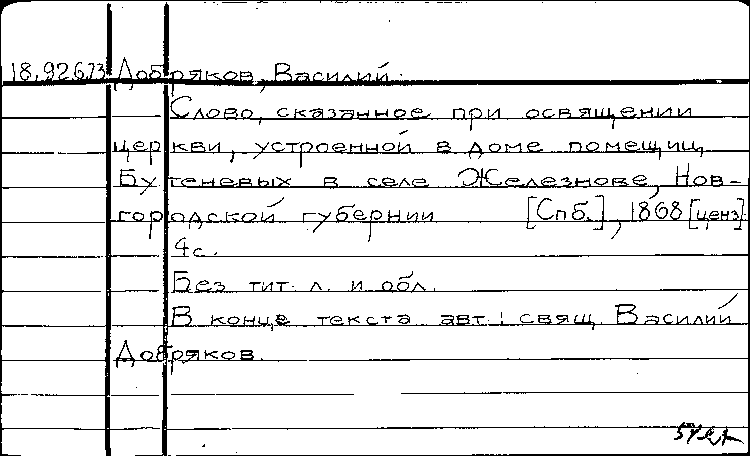 18.92.6.73 Добряков, Василий.
Слово, сказанное при освящении
церкви, устроенной в доме помещиц
Бутеневых в селе Железнове, Нов-
городской губернии [Спб.], 1868 [ценз]
4 с.
Без тит. л. и обл.
В конце текста авт.: свящ. Василий
Добряков.